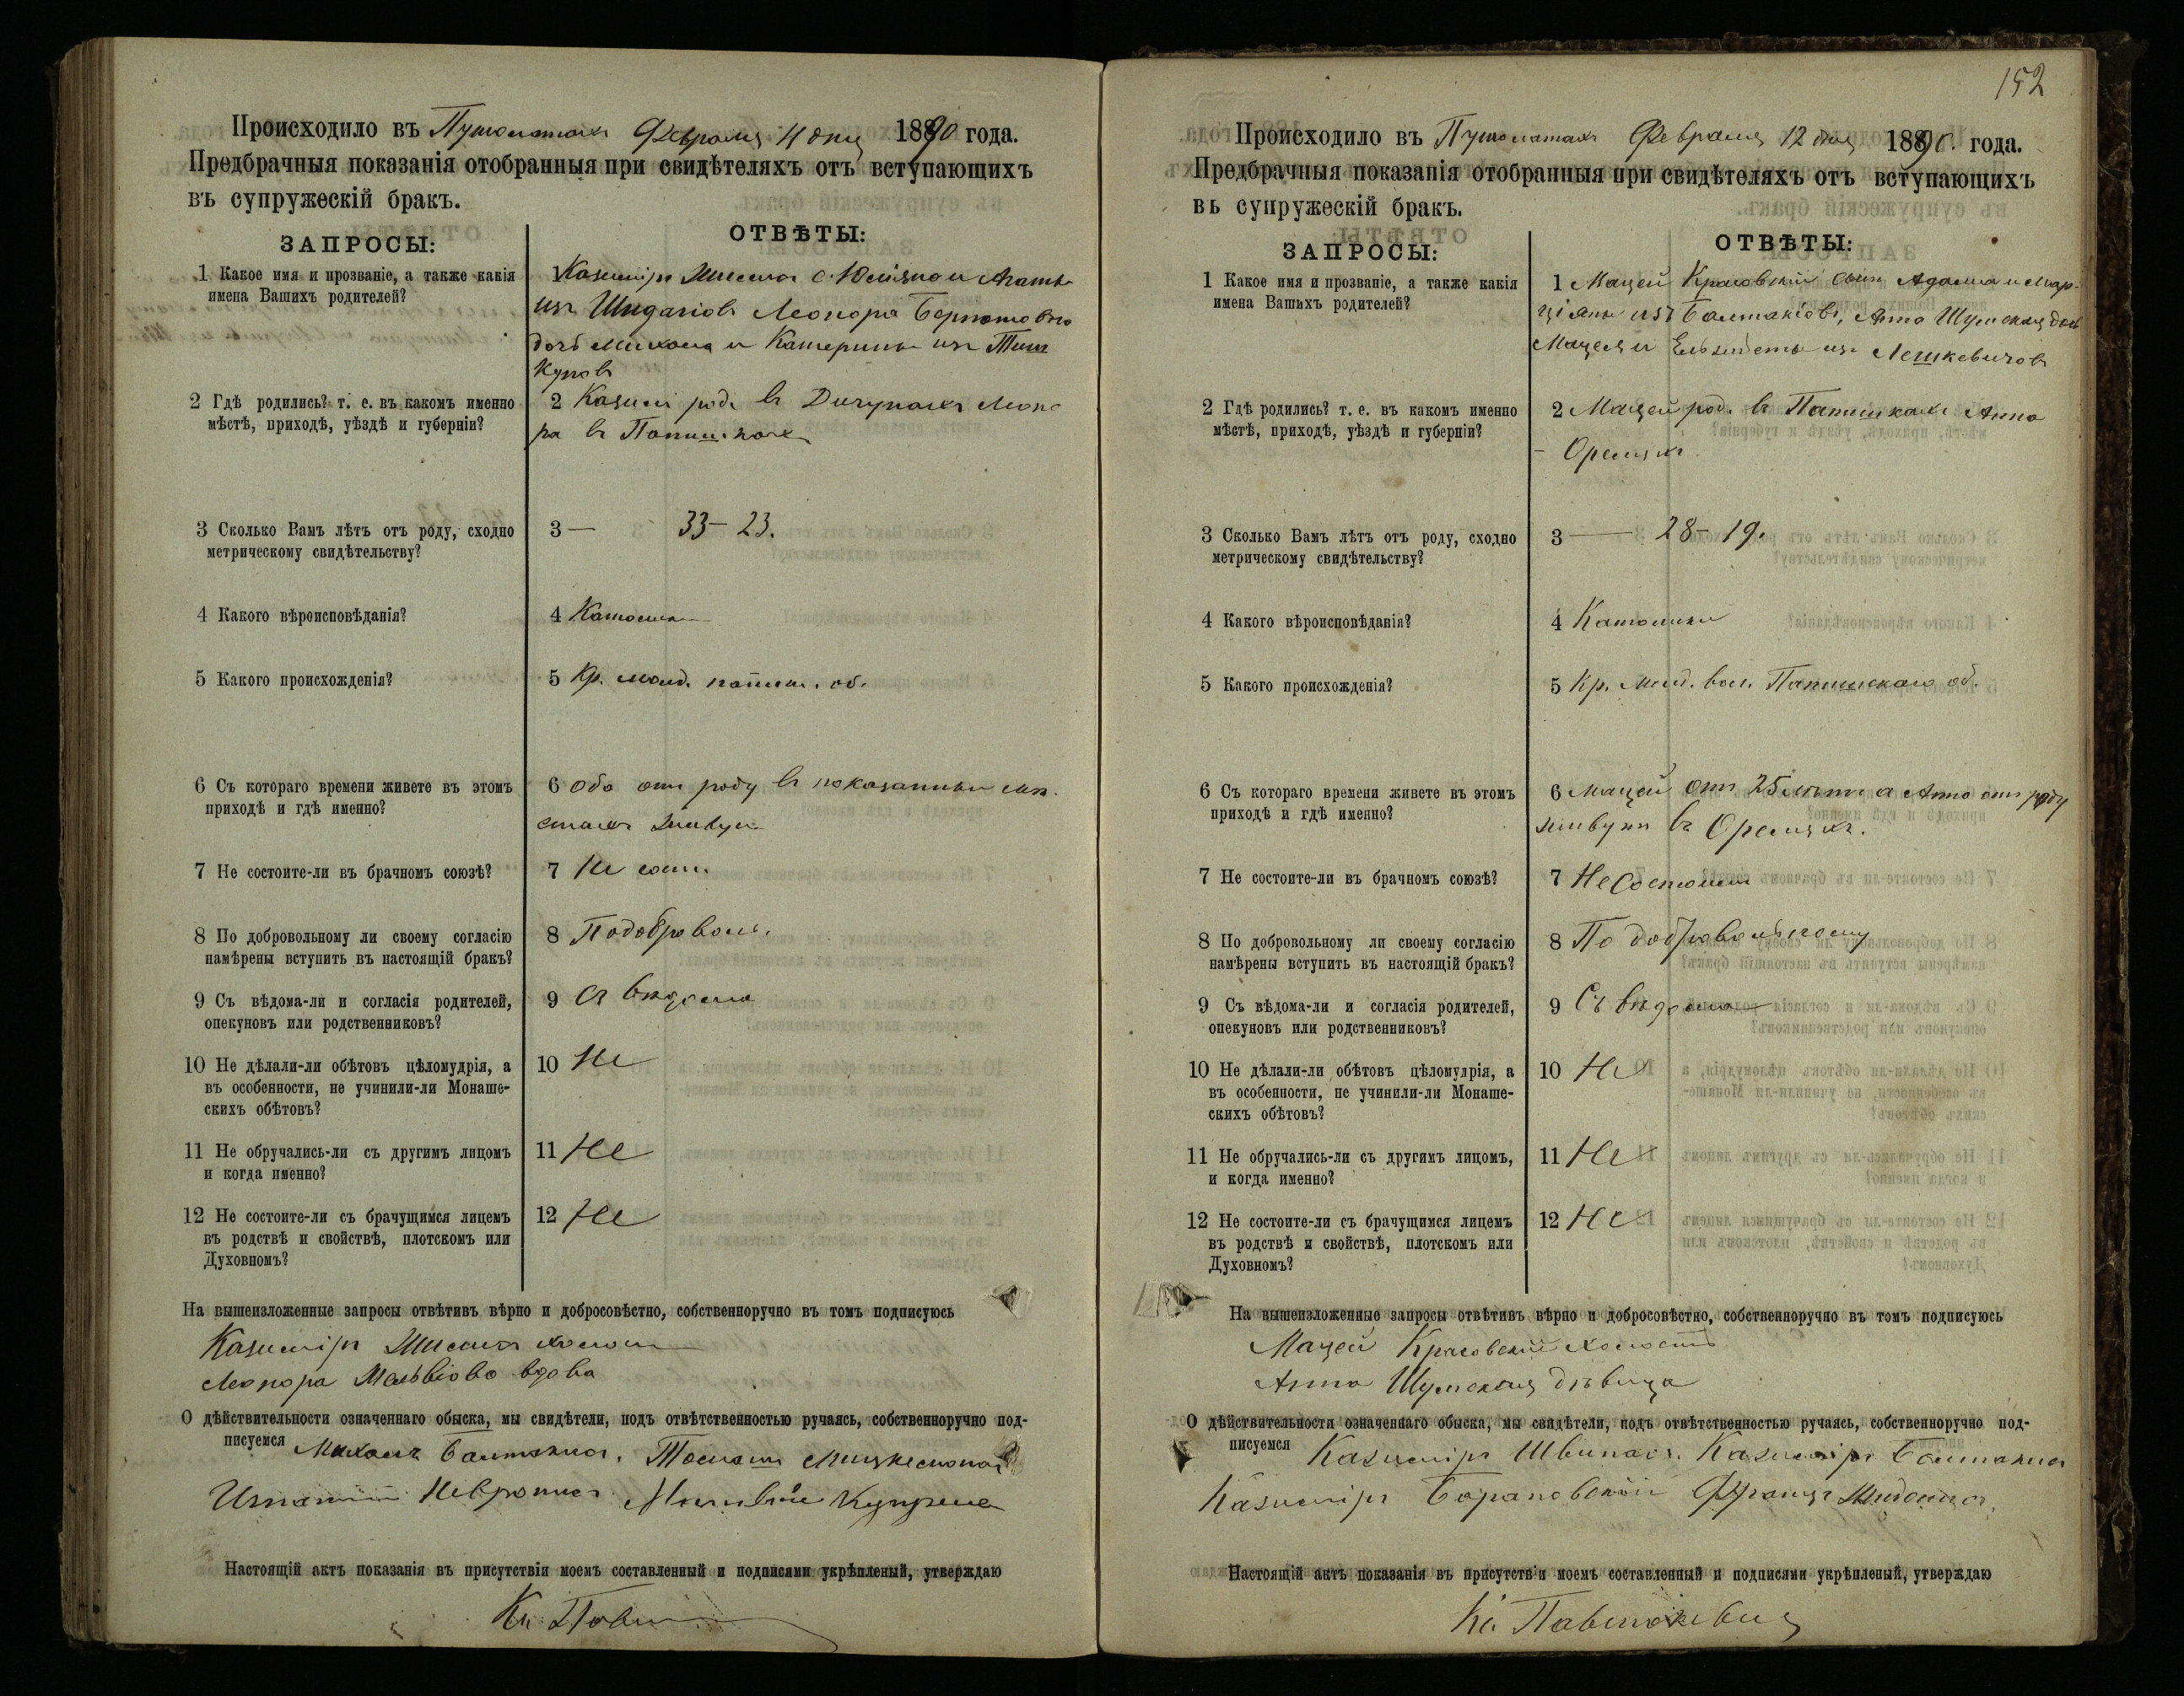 Происходило въ Пушолатахъ Февраля 4 дня 1890 года.
Предбрачныя показанія отобранныя при свидѣтеляхъ отъ вступающихъ
въ супружескій бракъ.
ЗАПРОСЫ:
ОТВѢТЫ:
1 Какое имя и прозваніе, а также какія
имена Вашихъ родителей?
1 Казиміръ с. и Агаты
изъ Леонора
дочь Михала и Катерины изъ
2 Гдѣ родились? т. е. въ какомъ именно
мѣстѣ, приходѣ, уѣздѣ и губерніи?
2 Казим род. в Леоно
ра в
3 Сколько Вамъ лѣтъ отъ роду, сходно
метрическому свидѣтельству?
3 — 33 – 23.
4 Какого вѣроисповѣданія?
4 Католики
5 Какого происхожденія?
5 Кр. об.
6 Съ котораго времени живете въ этомъ
приходѣ и гдѣ именно?
6 Оба отъ роду в показанных мѣ
стахъ живут
7 Не состоите-ли въ брачномъ союзѣ?
7 Не сост.
8 По добровольному ли своему согласію
намѣрены вступить въ настоящій бракъ?
8 По доброволь.
9 Съ вѣдома-ли и согласія родителей,
опекуновъ или родственниковъ?
9 Съ вѣдома
10 Не дѣлали-ли обѣтовъ цѣломудрія, а
въ особенности, не учинили-ли Монаше-
скихъ обѣтовъ?
10 Не
11 Не обручались-ли съ другимъ лицомъ
и когда именно?
11 Не
12 Не состоите-ли съ брачущимся лицемъ
въ родствѣ и свойствѣ, плотскомъ или
Духовномъ?
12 Не
На вышеизложенные запросы отвѣтивъ вѣрно и добросовѣстно, собственноручно въ томъ подписуюсь
Казиміръ холост
Леонора вдова
О дѣйствительности означеннаго обыска, мы свидѣтели, подъ отвѣтственностью ручаясь, собственноручно под-
писуемся Михалъ Балтакисъ.
Игнатій
Настоящій актъ показанія въ присутствіи моемъ составленный и подписями укрѣпленый, утверждаю
Кс.
152
Происходило въ Пушолатахъ Февраля 12 дня 1890. года.
Предбрачныя показанія отобранныя при свидѣтеляхъ отъ вступающихъ
въ супружескій бракъ.
ЗАПРОСЫ:
ОТВѢТЫ:
1 Какое имя и прозваніе, а также какія
имена Вашихъ родителей?
1 Мацей Краковскій сынъ Адама и Мар-
ціяны изъ Балтакіовъ, Анна Шумская дочь
Мацея и Ельжбеты изъ Лешкевичовъ
2 Гдѣ родились? т. е. въ какомъ именно
мѣстѣ, приходѣ, уѣздѣ и губерніи?
2 Мацей род. в Анна
–
3 Сколько Вамъ лѣтъ отъ роду, сходно
метрическому свидѣтельству?
3 — 28 – 19.
4 Какого вѣроисповѣданія?
4 Католики
5 Какого происхожденія?
5 Кр. вол. об.
6 Съ котораго времени живете въ этомъ
приходѣ и гдѣ именно?
6 Мацей отъ 25 лѣтъ а Анна отъ роду
живутъ въ
7 Не состоите-ли въ брачномъ союзѣ?
7 Не состоим
8 По добровольному ли своему согласію
намѣрены вступить въ настоящій бракъ?
8 По добровольному
9 Съ вѣдома-ли и согласія родителей,
опекуновъ или родственниковъ?
9 Съ вѣдома
10 Не дѣлали-ли обѣтовъ цѣломудрія, а
въ особенности, не учинили-ли Монаше-
скихъ обѣтовъ?
10 Не
11 Не обручались-ли съ другимъ лицомъ,
и когда именно?
11 Не
12 Не состоите-ли съ брачущимся лицемъ
въ родствѣ и свойствѣ, плотскомъ или
Духовномъ?
12 Не
На вышеизложенные запросы отвѣтивъ вѣрно и добросовѣстно, собственноручно въ томъ подписуюсь
Мацей Краковскій холостъ
Анна Шумская дѣвица
О дѣйствительности означеннаго обыска, мы свидѣтели, подъ отвѣтственностью ручаясь, собственноручно под-
писуемся Казиміръ Казиміръ Балтакисъ
Казиміръ Барановскій Францъ
Настоящій актъ показанія въ присутствіи моемъ составленный и подписями укрѣпленый, утверждаю
Кс.